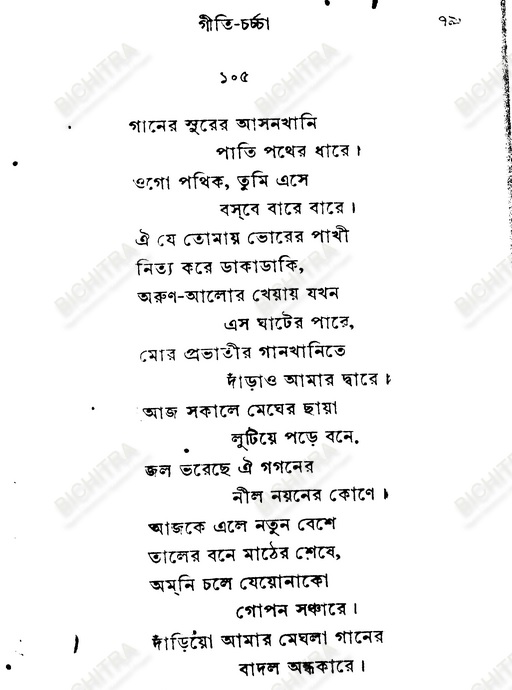 গীতি-চর্চ্চা ৭৯
১০৫
গানের সুরের আসনখানি
পাতি পথের ধারে।
ওগো পথিক, তুমি এসে
বস্‌বে বারে বারে।
ঐ যে তোমায় ভোরের পাখী
নিত্য করে ডাকাডাকি,
অরুণ-আলোর খেয়ায় যখন
এস ঘাটের পারে,
মোর প্রভাতীর গানখানিতে
দাঁড়াও আমার দ্বারে।
আজ সকালে মেঘের ছায়া
লুটিয়ে পড়ে বনে,
জল ভরেছে ঐ গগনের
নীল নয়নের কোণে।
আজকে এলে নতুন বেশে
তালের বনে মাঠের শেষে,
অম্‌নি চলে যেয়োনাকো
গোপন সঞ্চারে।
দাঁড়িয়ো আমার মেঘলা গানের
বাদল অন্ধকারে।
BICHITRA